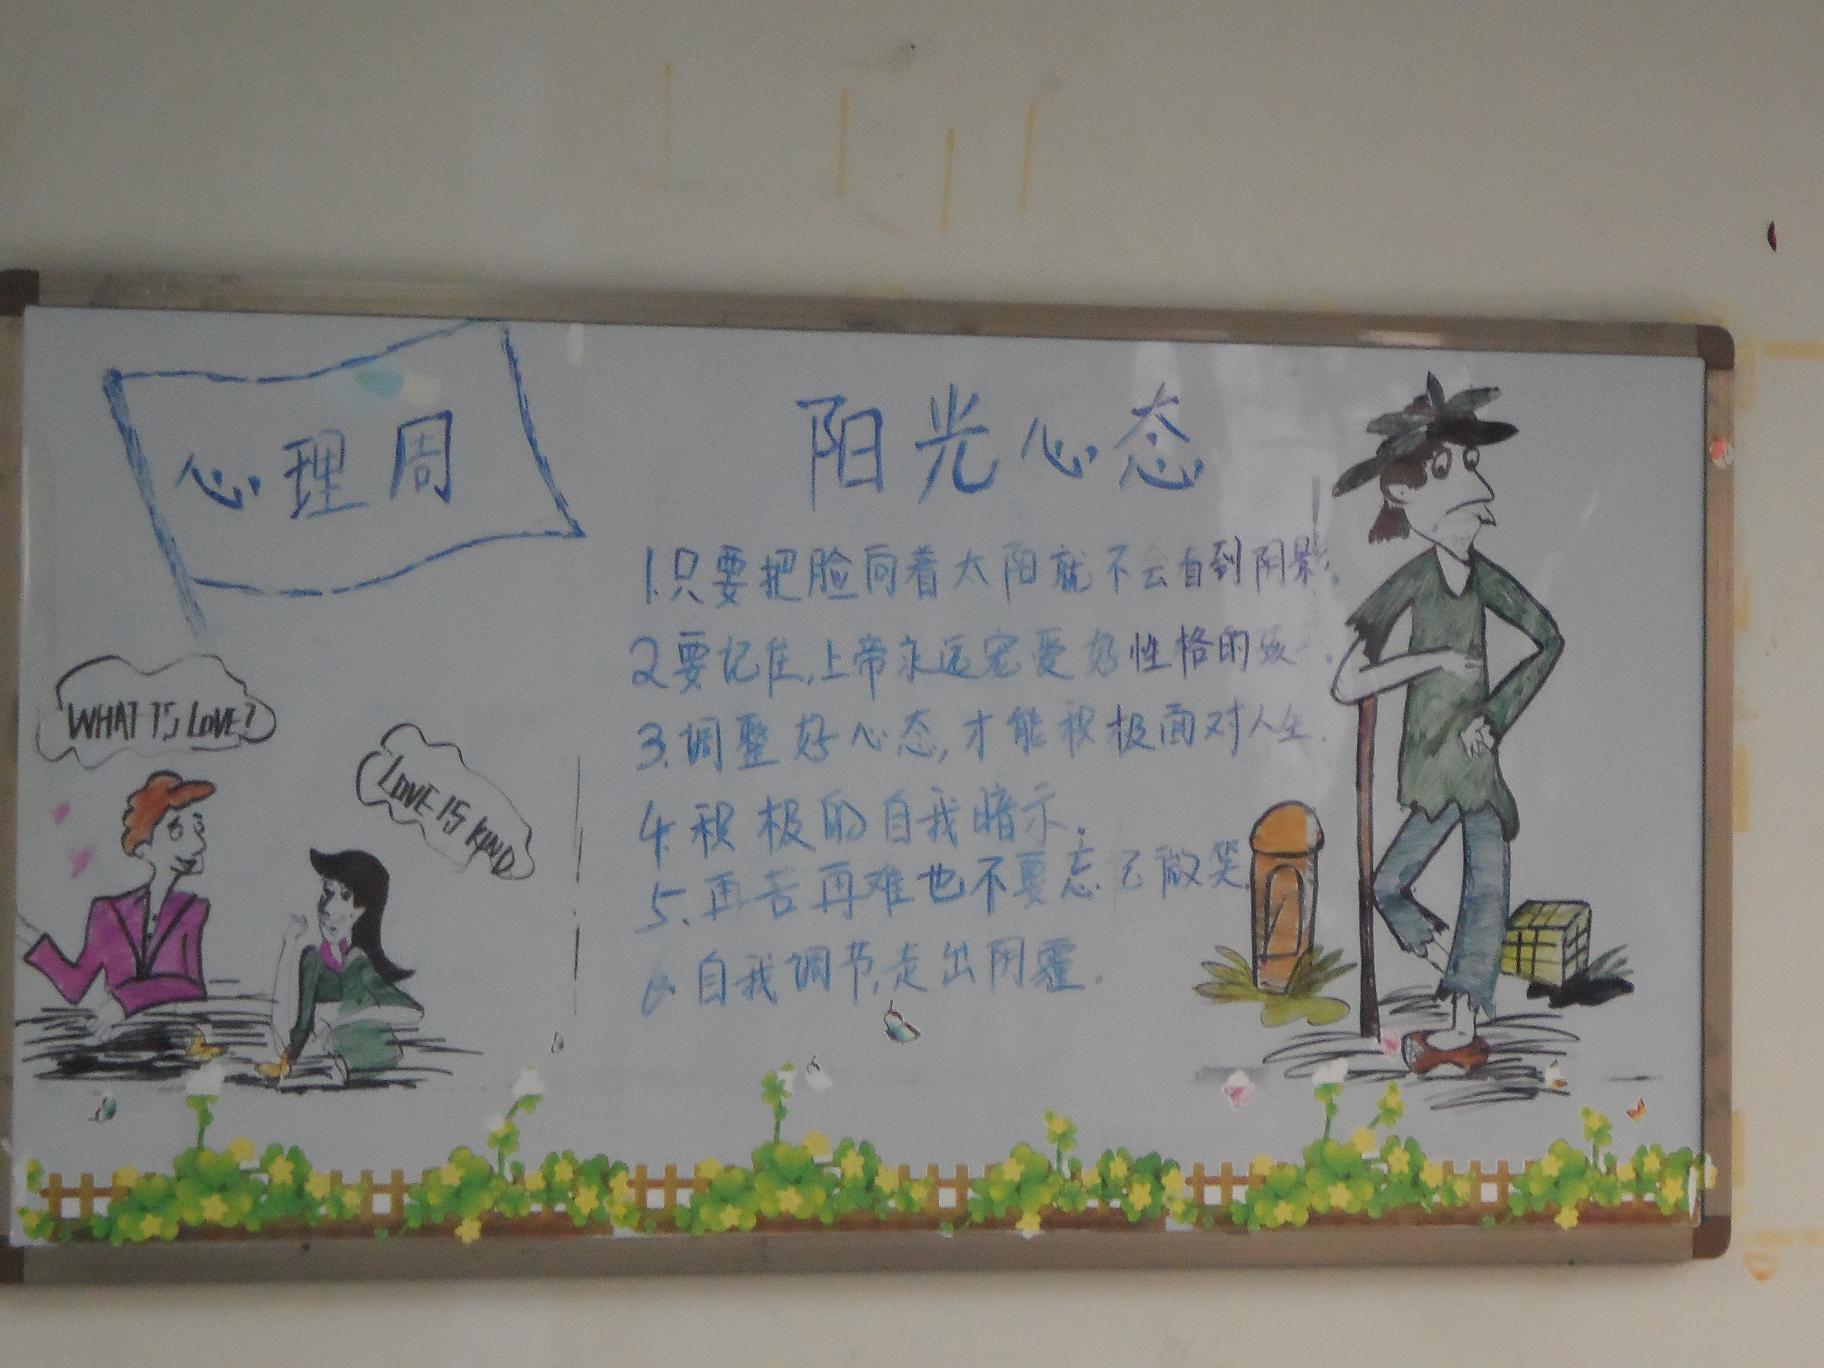 心理周
阳光心态
1.只要把脸向着太阳就不会看到阴影.
2.要记住,上帝永远宠爱好性格的孩
3.调整好心态,才能积极面对人生.
4.积极的自我暗示.
5.再苦再难也不要忘己微笑
6.自我调节,走出阴霾.
WHAT IS LOVE?
LOVE IS KIND